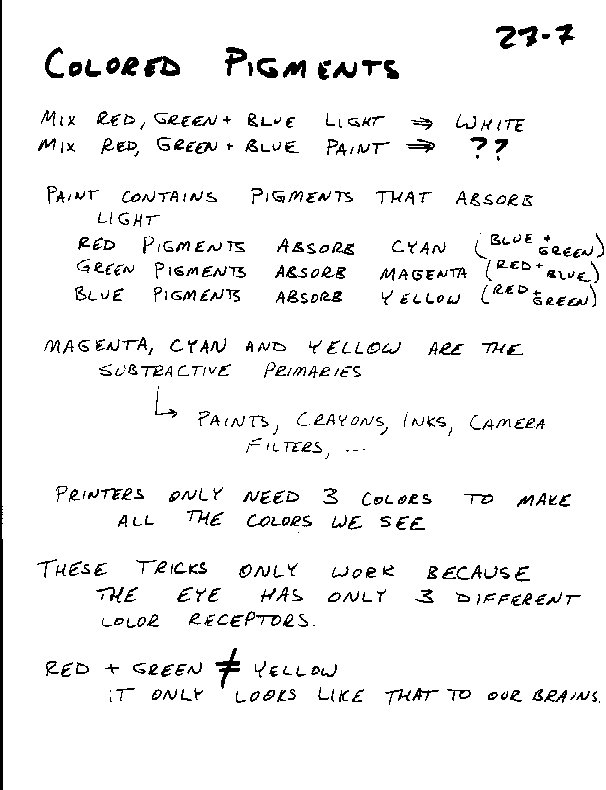 27-7
COLORED PIGMENTS
MIX RED, GREEN + BLUE LIGHT ⇒ WHITE
MIX RED, GREEN + BLUE PAINT ⇒ ??
PAINT CONTAINS PIGMENTS THAT ABSORB
LIGHT
RED PIGMENTS ABSORB CYAN (BLUE + GREEN)
GREEN PIGMENTS ABSORB MAGENTA (RED + BLUE)
BLUE PIGMENTS ABSORB YELLOW (RED + GREEN)
MAGENTA, CYAN AND YELLOW ARE THE
SUBTRACTIVE PRIMARIES
↳ PAINTS, CRAYONS, INKS, CAMERA
FILTERS, ...
PRINTERS ONLY NEED 3 COLORS TO MAKE
ALL THE COLORS WE SEE
THESE TRICKS ONLY WORK BECAUSE
THE EYE HAS ONLY 3 DIFFERENT
COLOR RECEPTORS.
RED + GREEN ≠ YELLOW
IT ONLY LOOKS LIKE THAT TO OUR BRAINS.